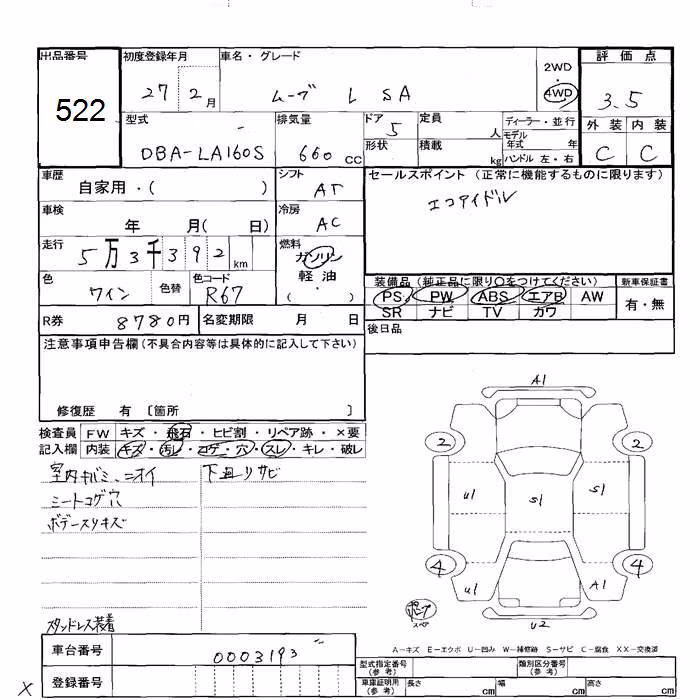 出品番号 初度登録年月 車名・グレード 2WD・4WD 評価点
522 27 2月 ムーブ L SA 3.5
型式 排気量 ドア 5 定員 人 ディーラー・並行 外装 内装
DBA-LA160S 660cc 形状 積載 kg モデル年式 年 C C
ハンドル 左・右
車歴 自家用・( ) シフト AT セールスポイント (正常に機能するものに限ります)
エコアイドル
車検 年 月( 日) 冷房 AC
走行 5万3千392km 燃料 ガソリン・軽油・( )
色 ワイン 色替 色コード R67
装備品 (純正品に限り○をつけてください) 新車保証書
PS PW ABS エアB AW 有・無
SR ナビ TV カワ
R券 8780円 名変期限 月 日 後日品
注意事項申告欄(不具合内容等は具体的に記入して下さい)
修復歴 有 〔箇所 〕
検査員 FW キズ・飛石・ヒビ割・リペア跡・×要
記入欄 内装 キズ・汚レ・コゲ・穴・スレ・キレ・破レ
室内キバミ、ニオイ 下回リサビ
シートコゲ穴
ボデースリキズ
スタッドレス装着
A1
2 2
U1 S1 S1
4 4
U1 A1
U2
スペア
A-キズ E-エクボ U-凹み W-補修跡 S-サビ C-腐食 XX-交換済
車台番号 0003193
登録番号
型式指定番号(参考) 類別区分番号(参考)
車庫証明用(参考) 長さ cm 幅 cm 高さ cm
X